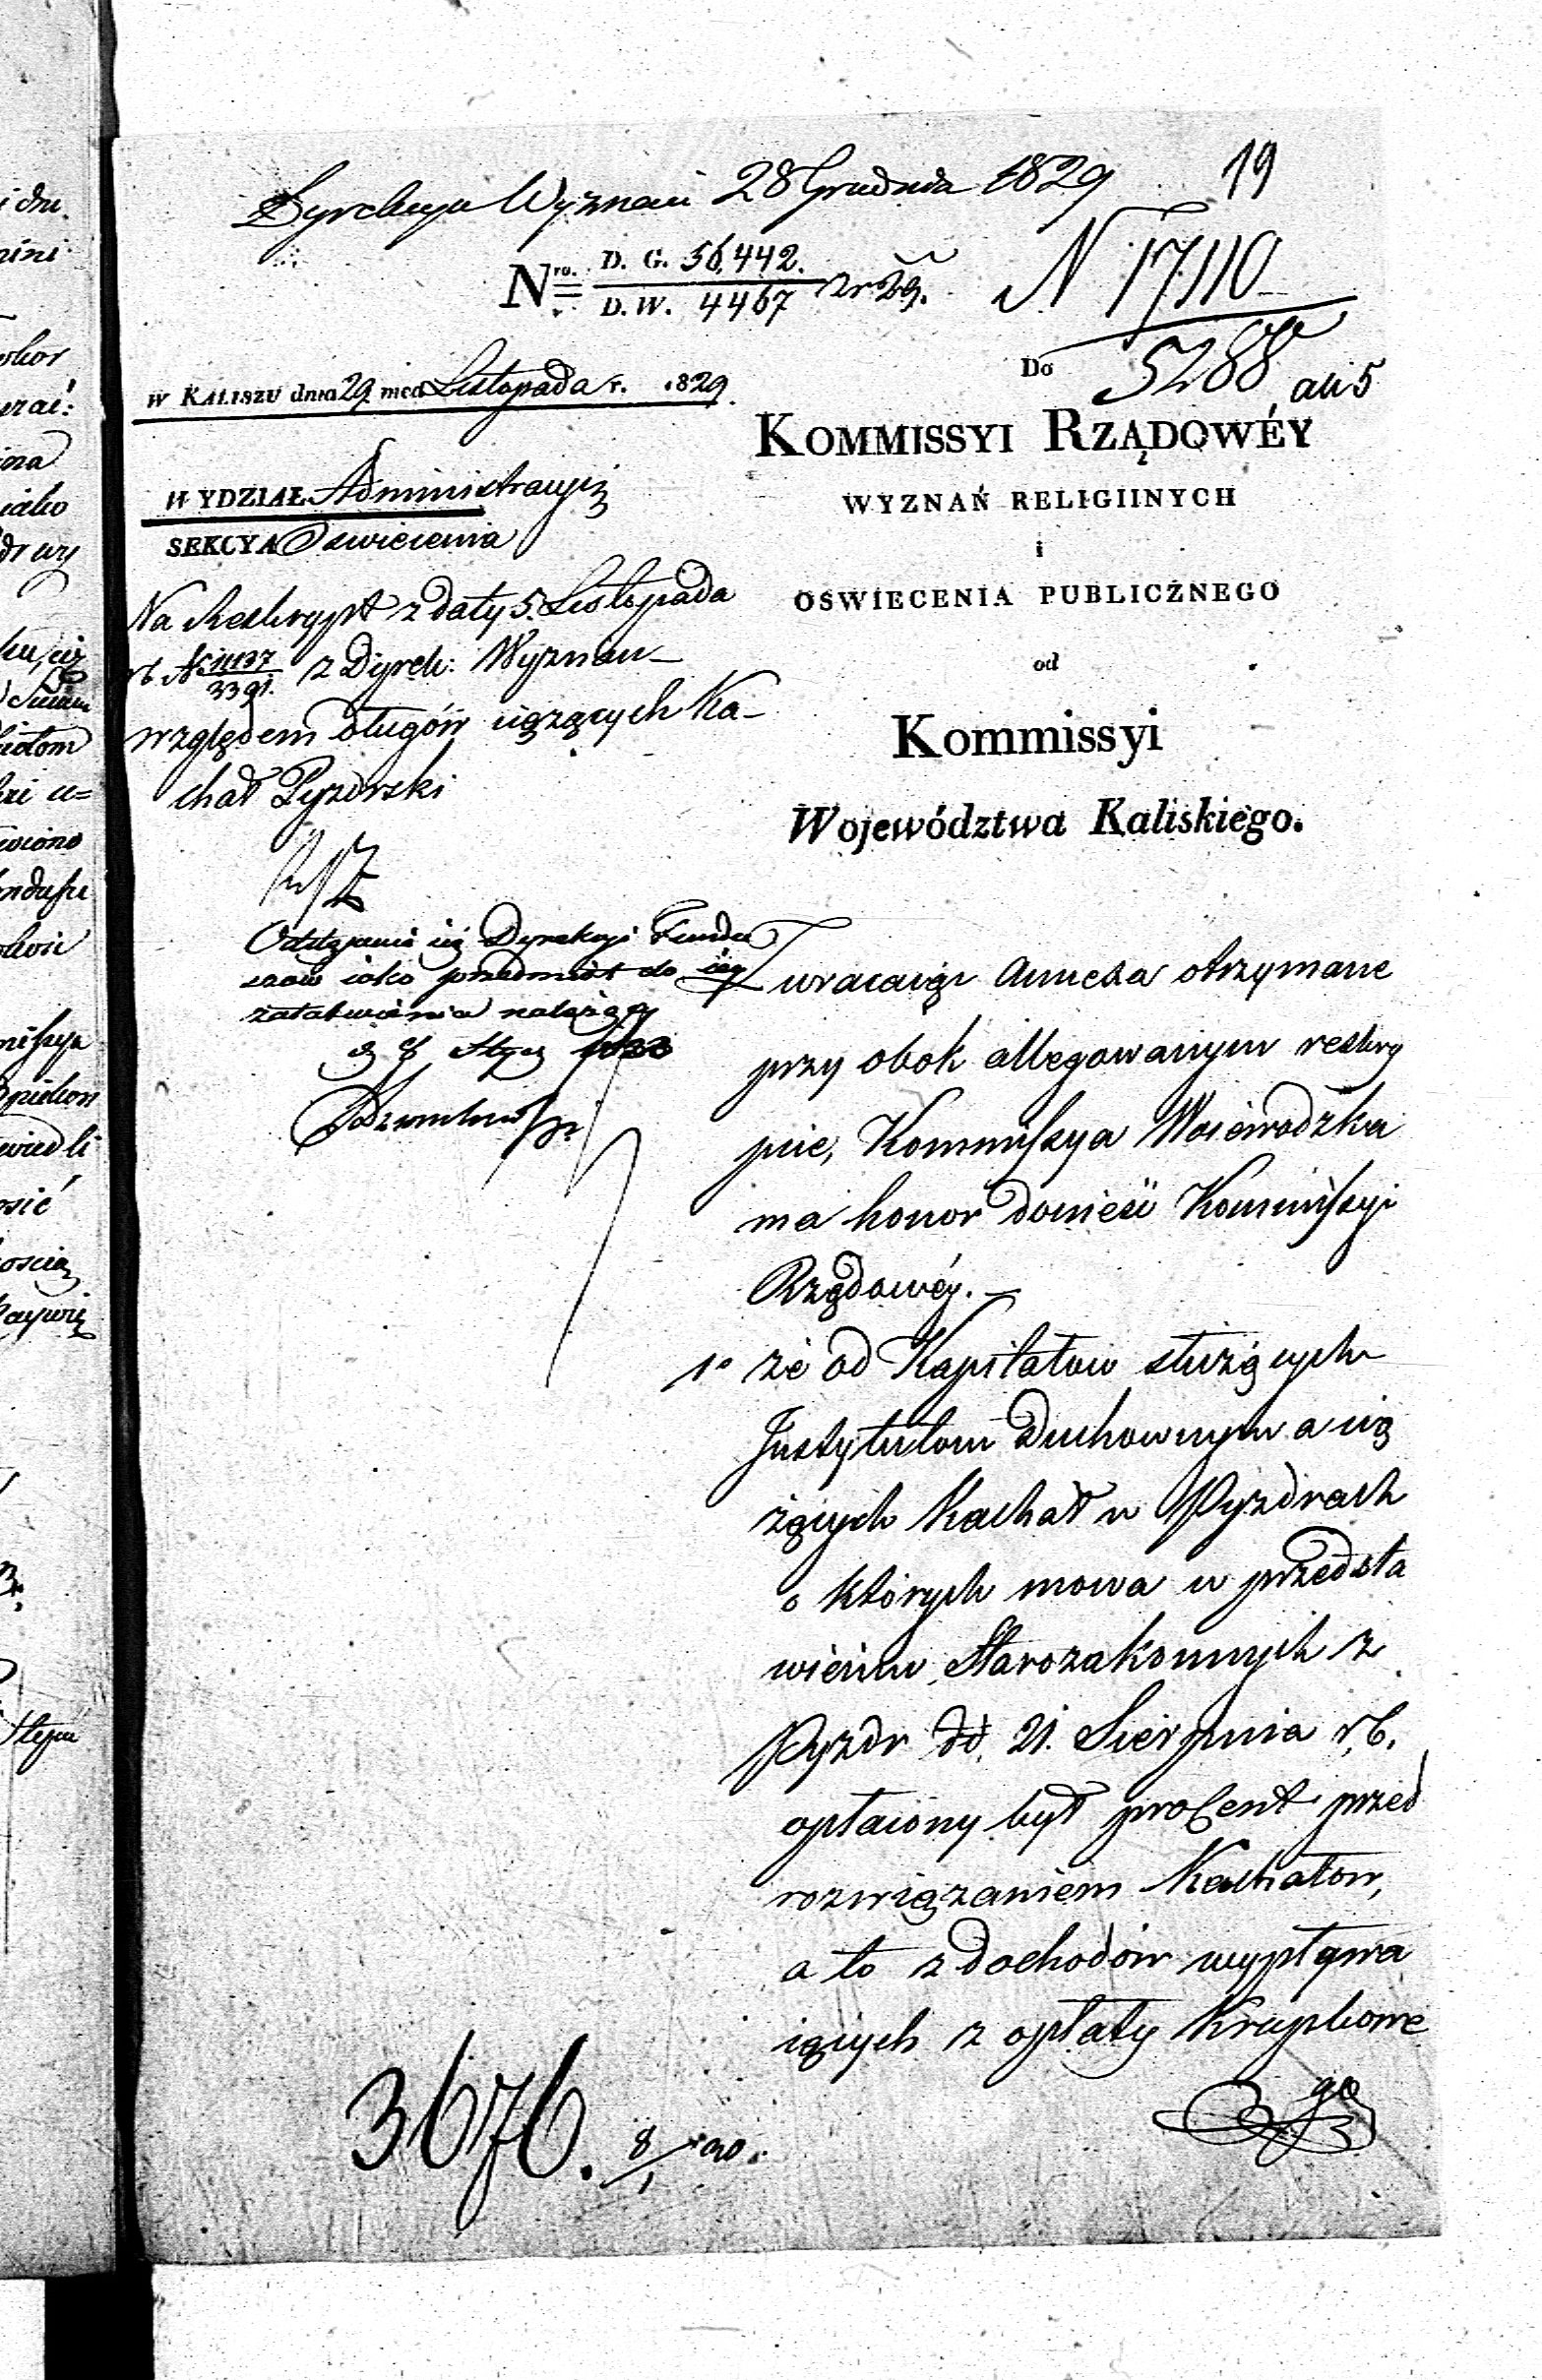 19
Dyrekcya Wyznań 28 Grudnia 1829
Nro. D. G. 56,442. / D. W. 4467 z r. 29.
N 17110
5288
Do
W KALISZU dnia 29 mca Listopada r. 1829.
KOMMISSYI RZĄDOWÉY
WYZNAŃ RELIGIINYCH
i
OSWIECENIA PUBLICZNEGO
od
Kommissyi
Województwa Kaliskiego.
WYDZIAŁ Administracyi
SEKCYA Oswiecenia
Na Reskrypt z daty 5. Listopada
rb N 11137 / 3391. z Dyrek: Wyznan
względem długów ciążących Ka-
chał Pyzdrski
Odstąpić się Dyrekcyi Fundu
szów iako przedmiot do iey
załatwienia należący
Zwracaiąc annexa otrzymane
przy obok allegowanym reskry
pcie, Kommissya Woiewodzka
ma honor donieść Kommissyi
Rządowéy.
1o że od Kapitałow służących
Instytutom Duchownym a cią
żących Kachał w Pyzdrach
o których mowa w przedsta
wieniu Starozakonnych z
Pyzdr dd. 21. Sierpnia r. b.
opłacony był procent przed
rozwiązaniem Kachałow,
a to z dochodów wypływa
iących z opłaty Krupkowe
go
3676. 8/1 30.